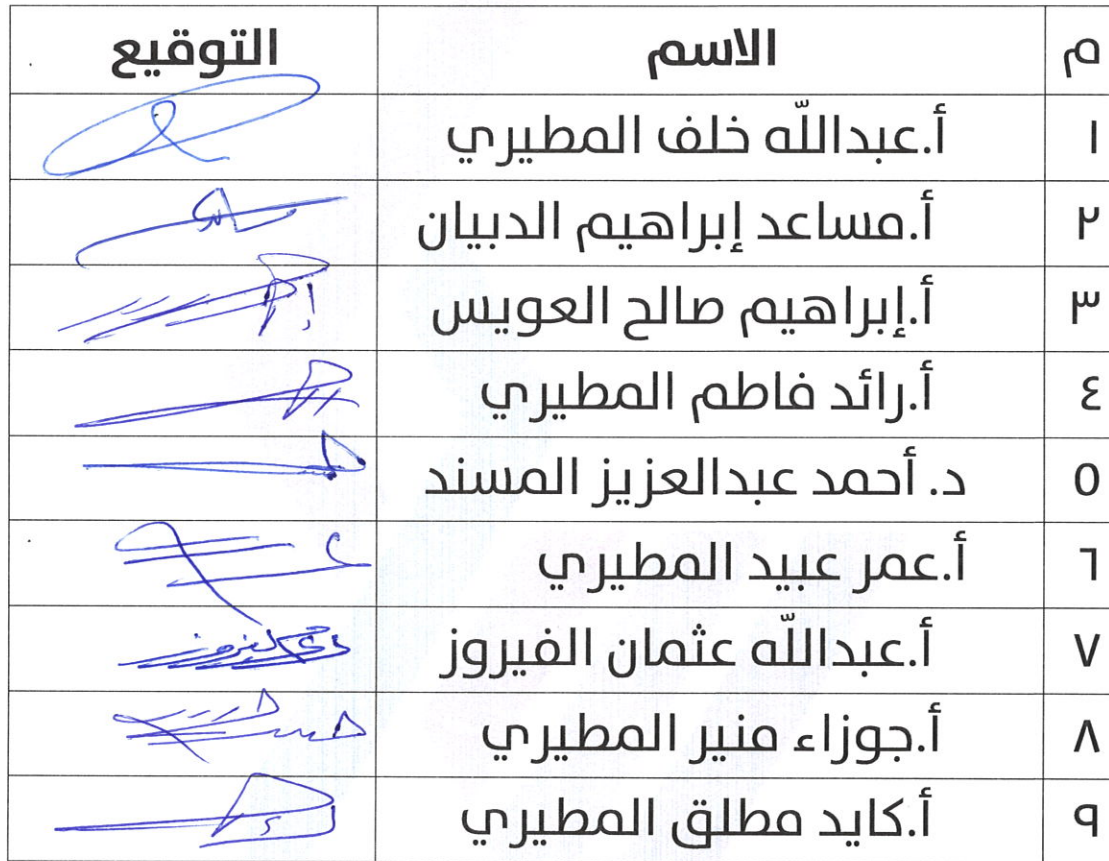 م الاسم التوقيع
١ أ.عبداللّه خلف المطيري
٢ أ.مساعد إبراهيم الدبيان
٣ أ.إبراهيم صالح العويس
٤ أ.رائد فاطم المطيري
٥ د. أحمد عبدالعزيز المسند
٦ أ.عمر عبيد المطيري
٧ أ.عبداللّه عثمان الفيروز
٨ أ.جوزاء منير المطيري
٩ أ.كايد مطلق المطيري